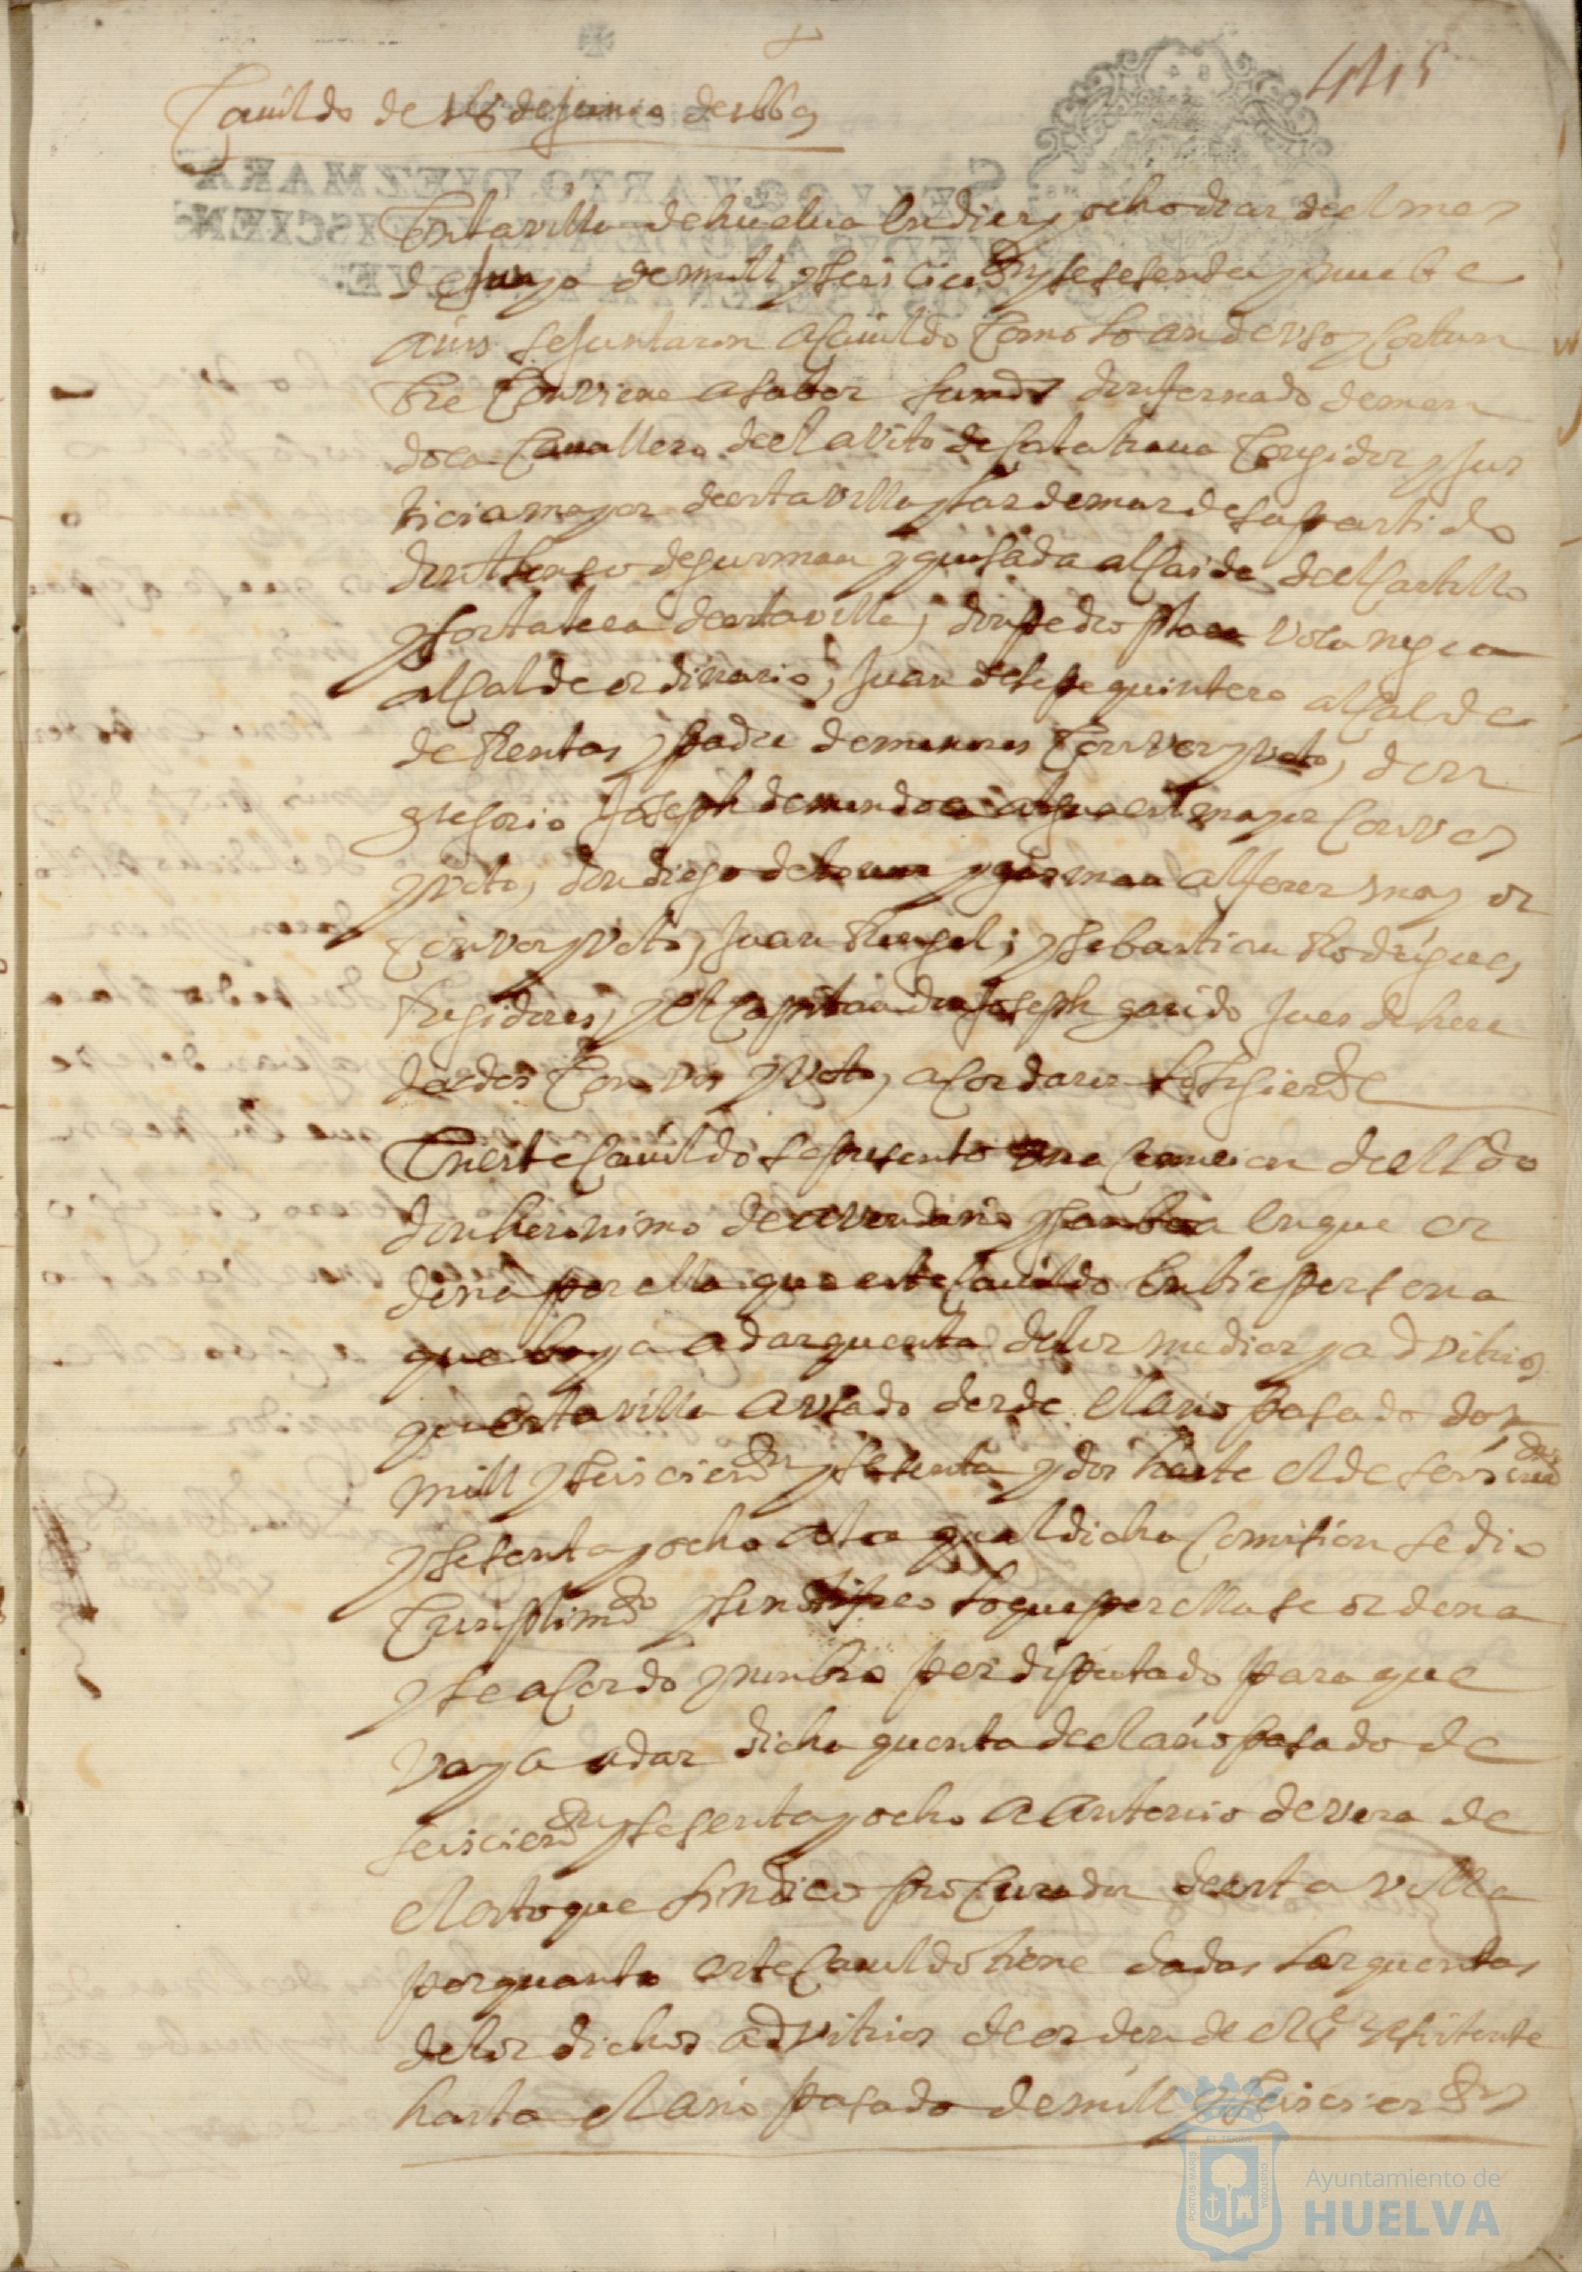 445
Cauildo de 18 de Junio de 1669
En la villa de huelua en diez y ocho dias de el mes
de Junio de mill y seiscientos y sesenta y nuebe
años se juntaron a Cauildo Como lo an de vso y Costun
bre Conviene a saber su md don fernado de men
doca Cauallero de el avito de Calatraua Coregidor y Jus
ticia mayor de esta villa y las demas de su partido
don Alonso de gusman y quesada alcaide de el Castillo
y fortaleca de esta villa; don Pedro Place
alcalde ordinario; Juan de lepe quintero alcalde
de Rentas y padre de menores Con vos y voto, don
gregorio Joseph de mendoca alguacil mayor Con vos
y voto, don diego de touar y gusman alferes mayor
Con vos y voto, Juan Rangel; y sebastian Rodrigues
Regidores, y el Capitan don Joseph garido Jues de here
dades Con vos y voto, acordaron lo sigiente
En este Cauildo se presento una Comicion de el Ldo
don heronimo de avendaño y ganboa en que or
dena por ella que este Cauildo enbie persona
que baya a dar quenta de los medios y advitrios
que esta villa a vsado desde el año pasado de
mill y seiscientos y sesenta y dos hasta el de seiscientos
y sesenta y ocho a la qual dicha Comision se dio
Cunplimto y se notifico lo que por ella se ordena
y se acordo y nunbro por diputado para que
vaya a dar dicha quenta de el año pasado de
seiscientos y sesenta y ocho a Antonio de vera de
el estoque sindico procurador de esta villa
por quanto este Cauildo tiene dadas las quentas
de los dichos advitrios de orden de el
hasta el año pasado de mill y seiscientos
Ayuntamiento de
HUELVA
PORTUS MARIS
ET TERRAE
CUSTODIA